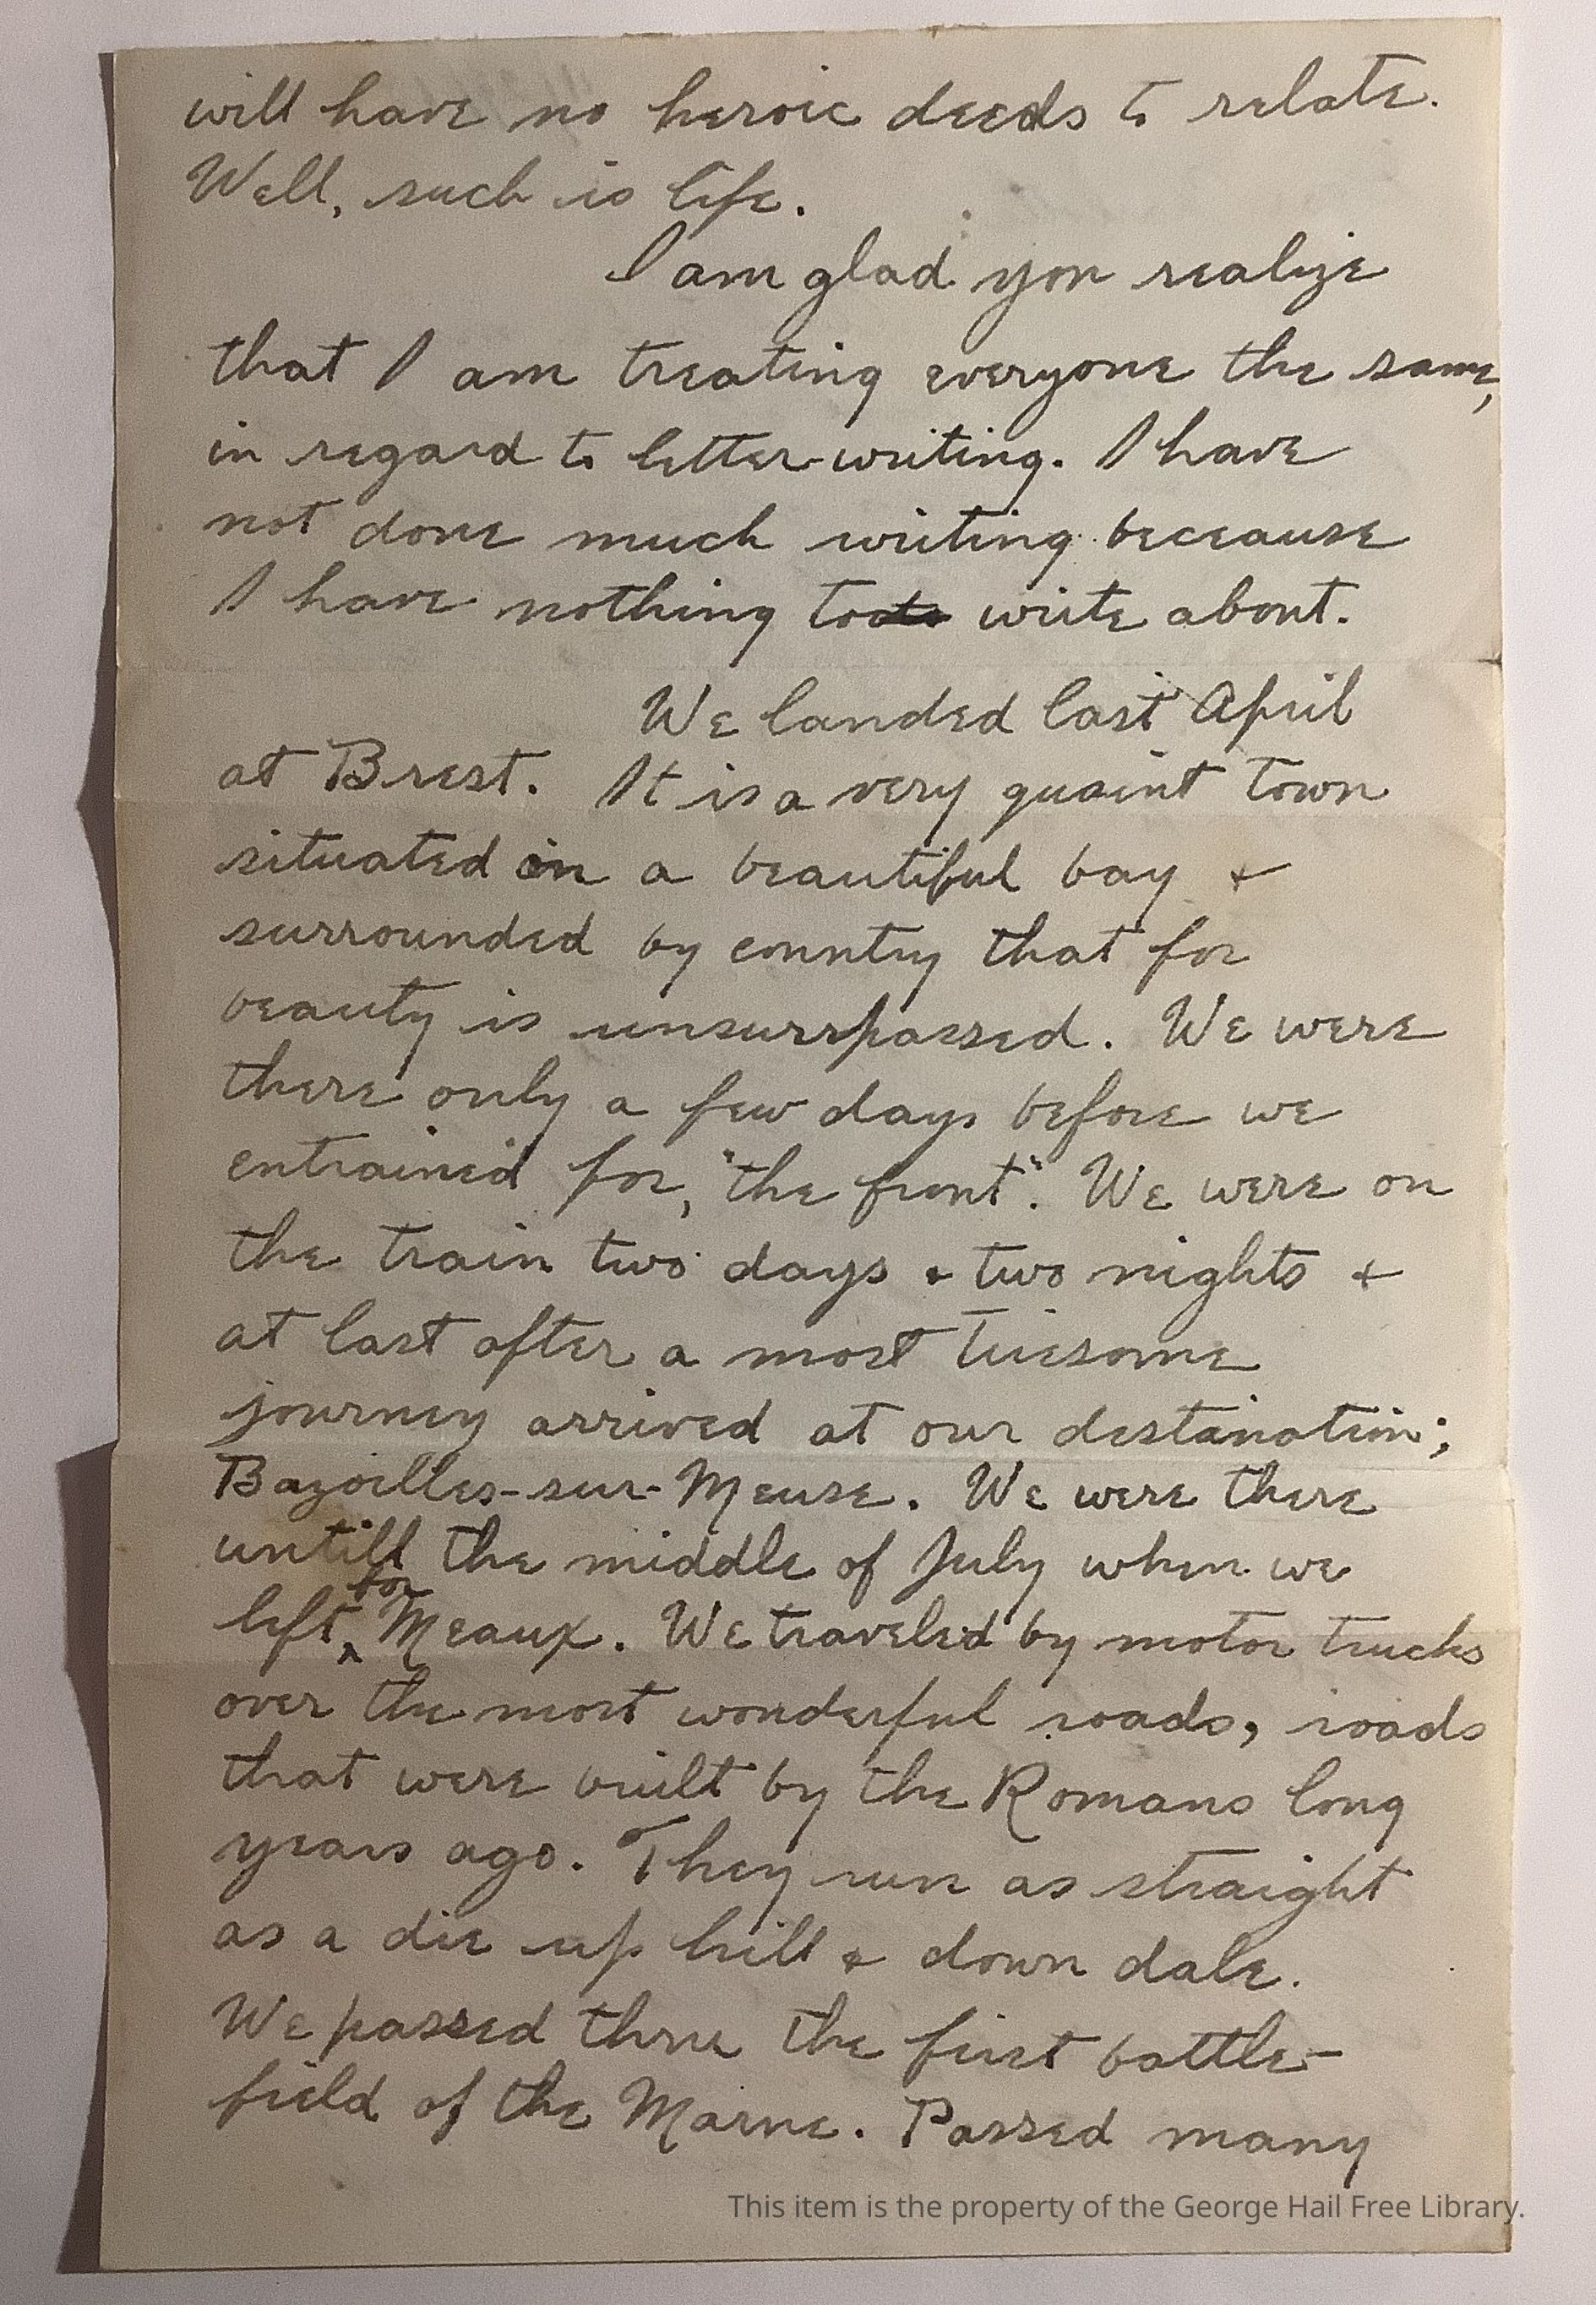 will have no heroic deeds to relate.
Well, such is life.
I am glad you realize
that I am treating everyone the same,
in regard to letter-writing. I have
not done much writing because
I have nothing to write about.
We landed last April
at Brest. It is a very quaint town
situated on a beautiful bay &
surrounded by country that for
beauty is unsurrpassed. We were
there only a few days before we
entrained for, "the front". We were on
the train two days & two nights &
at last after a most tiresome
journey arrived at our destination;
Bazoilles-sur-Meuse. We were there
untill the middle of July when we
for
left, ^ Meaux. We traveled by motor trucks
over the most wonderful roads, roads
that were built by the Romans long
years ago. They run as straight
as a die up hill & down dale.
We passed thru the first battle-
field of the Marne. Passed many
This item is the property of the George Hail Free Library.